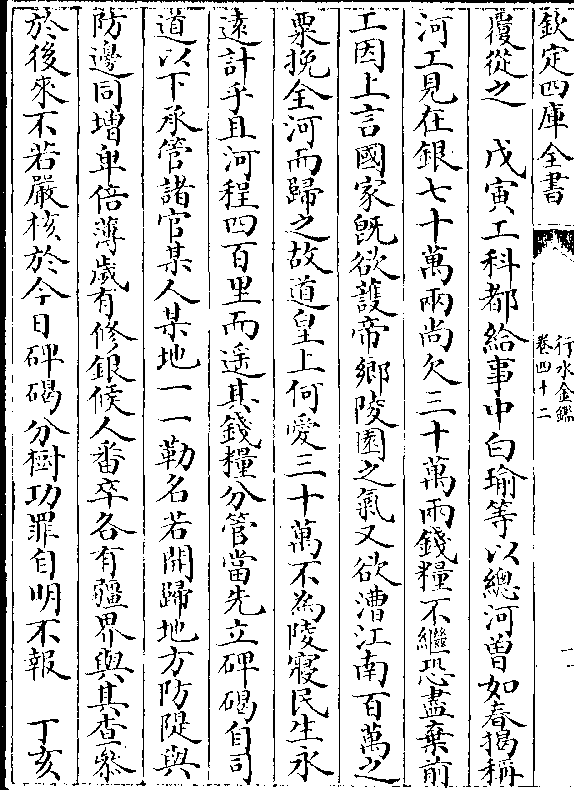 欽定四庫全書
行水金鑑
卷四十二
一
覆從之　戊寅工科都給事中白瑜等以總河曽如春揭稱
河工見在銀七十萬兩尚欠三十萬兩錢糧不繼恐盡棄前
工因上言國家既欲護帝鄉陵園之氣又欲漕江南百萬之
粟挽全河而歸之故道皇上何愛三十萬不為陵寢民生永
遠計乎且河程四百里而遥其錢糧分管當先立碑碣自司
道以下承管諸官某人某地一一勒名若開歸地方防隄與
防邊同增卑倍薄歲有修銀候人番卒各有疆界與其查叅
於後來不若嚴核於今日碑碣分樹功罪自明不報　丁亥